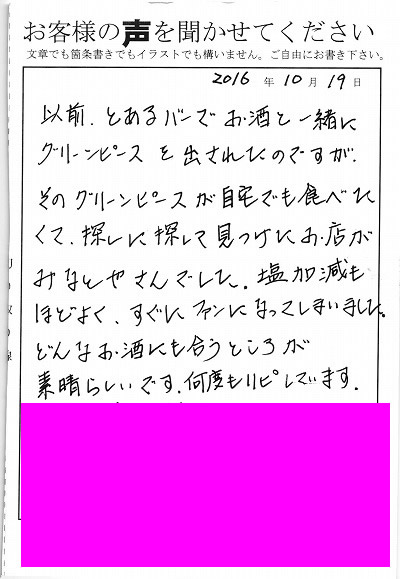 お客様の声を聞かせてください
文章でも箇条書きでもイラストでも構いません。ご自由にお書き下さい。
2016 年 10 月 19 日
以前、とあるバーでお酒と一緒に
グリーンピースを出されたのですが、
そのグリーンピースが自宅でも食べたく
て、探しに探して見つけたお店が
みなとやさんでした。塩加減も
ほどよく、すぐにファンになってしまいました。
どんなお酒にも合うところが
素晴らしいです。何度もリピしています。